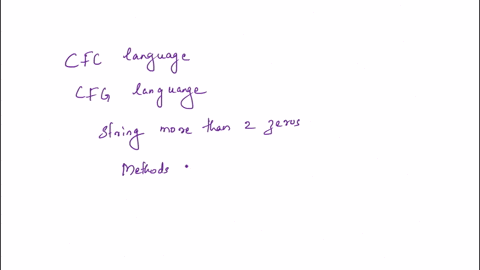 CFC language
CFG languange
string more than 2 zeros
Methods